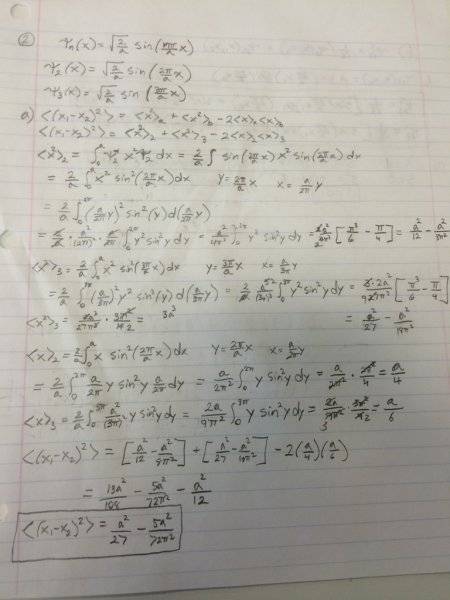 ② ψₙ(x) = √(2/a) sin(nπ/a x)
ψ₂(x) = √(2/a) sin(2π/a x)
ψ₃(x) = √(2/a) sin(3π/a x)
a) <(x₁-x₂)²> = <x²>₂ + <x²>₃ - 2<x>₂<x>₃
<(x₁-x₂)²> = <x²>₂ + <x²>₃ - 2<x>₂<x>₃
<x²>₂ = ∫₀ᵃ ψ₂ x² ψ₂ dx = 2/a ∫ sin(2π/a x) x² sin(2π/a x) dx
= 2/a ∫₀ᵃ x² sin²(2π/a x) dx y = 2π/a x x = a/2π y
= 2/a ∫₀^2π (a/2π y)² sin²(y) d(a/2π y)
∫₀^2π y² sin²y dy = [π³/6 - π/4] = a²/12 -
<x²>₃ = 2/a ∫₀ᵃ x² sin²(3π/a x) dx y = 3π/a x x = a/3π y
= 2/a ∫₀^3π (a/3π)² y² sin²(y) d(a/3π y) = ∫₀^3π y² sin²y dy = [π³/6 - π/4]
<x²>₃ = = 3a³ = a²/27 -
<x>₂ = 2/a ∫₀ᵃ x sin²(2π/a x) dx y = 2π/a x x = a/2π y
= 2/a ∫₀^2π a/2π y sin²y a/2π dy = a/2π² ∫₀^2π y sin²y dy = a/2π² · π²/4 = a/4
<x>₃ = 2/a ∫₀^3π a²/(3π)² y sin²y dy = 2a/9π² ∫₀^3π y sin²y dy = = a/6
<(x₁-x₂)²> = [a²/12 - a²/8π²] + [a²/27 - ] - 2(a/4)(a/6)
= 13a²/108 - 5a²/72π² - a²/12
<(x₁-x₂)²> = a²/27 - 5a²/72π²